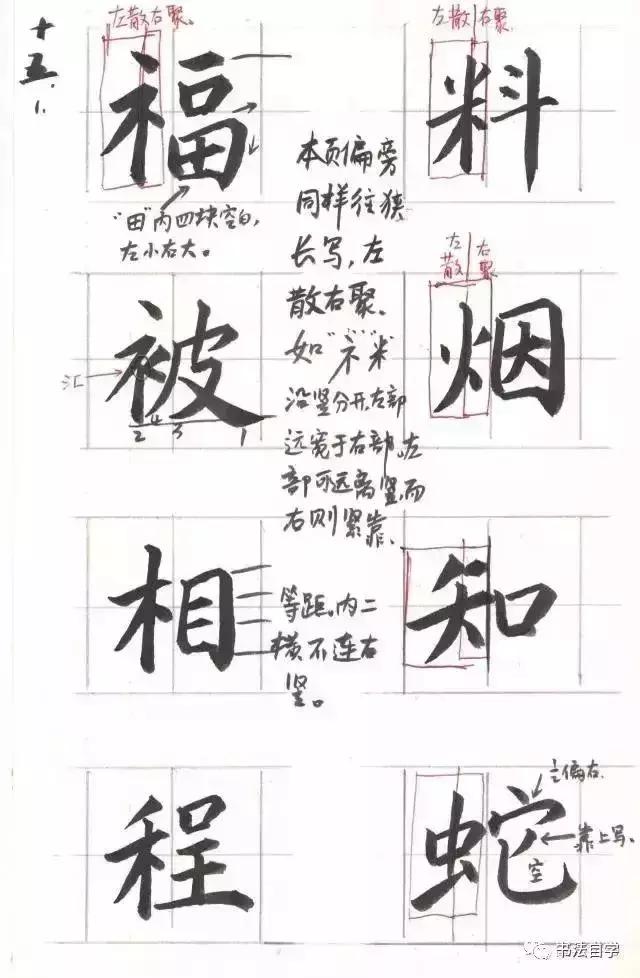 十五.1.
左散右聚.
福
"田"内四块空白,
左小右大。
左散右聚.
料
本页偏旁
同样往狭
长写,左
散右聚.
如"礻""米"
沿竖分开,左部
远宽于右部,左
部可远离竖,而
右则紧靠.
汇
被
2 4 3 1
左散
右聚
烟
相
等距,内二
横不连右
竖。
知
程
蛇
偏右.
靠上写.
空
书法自学